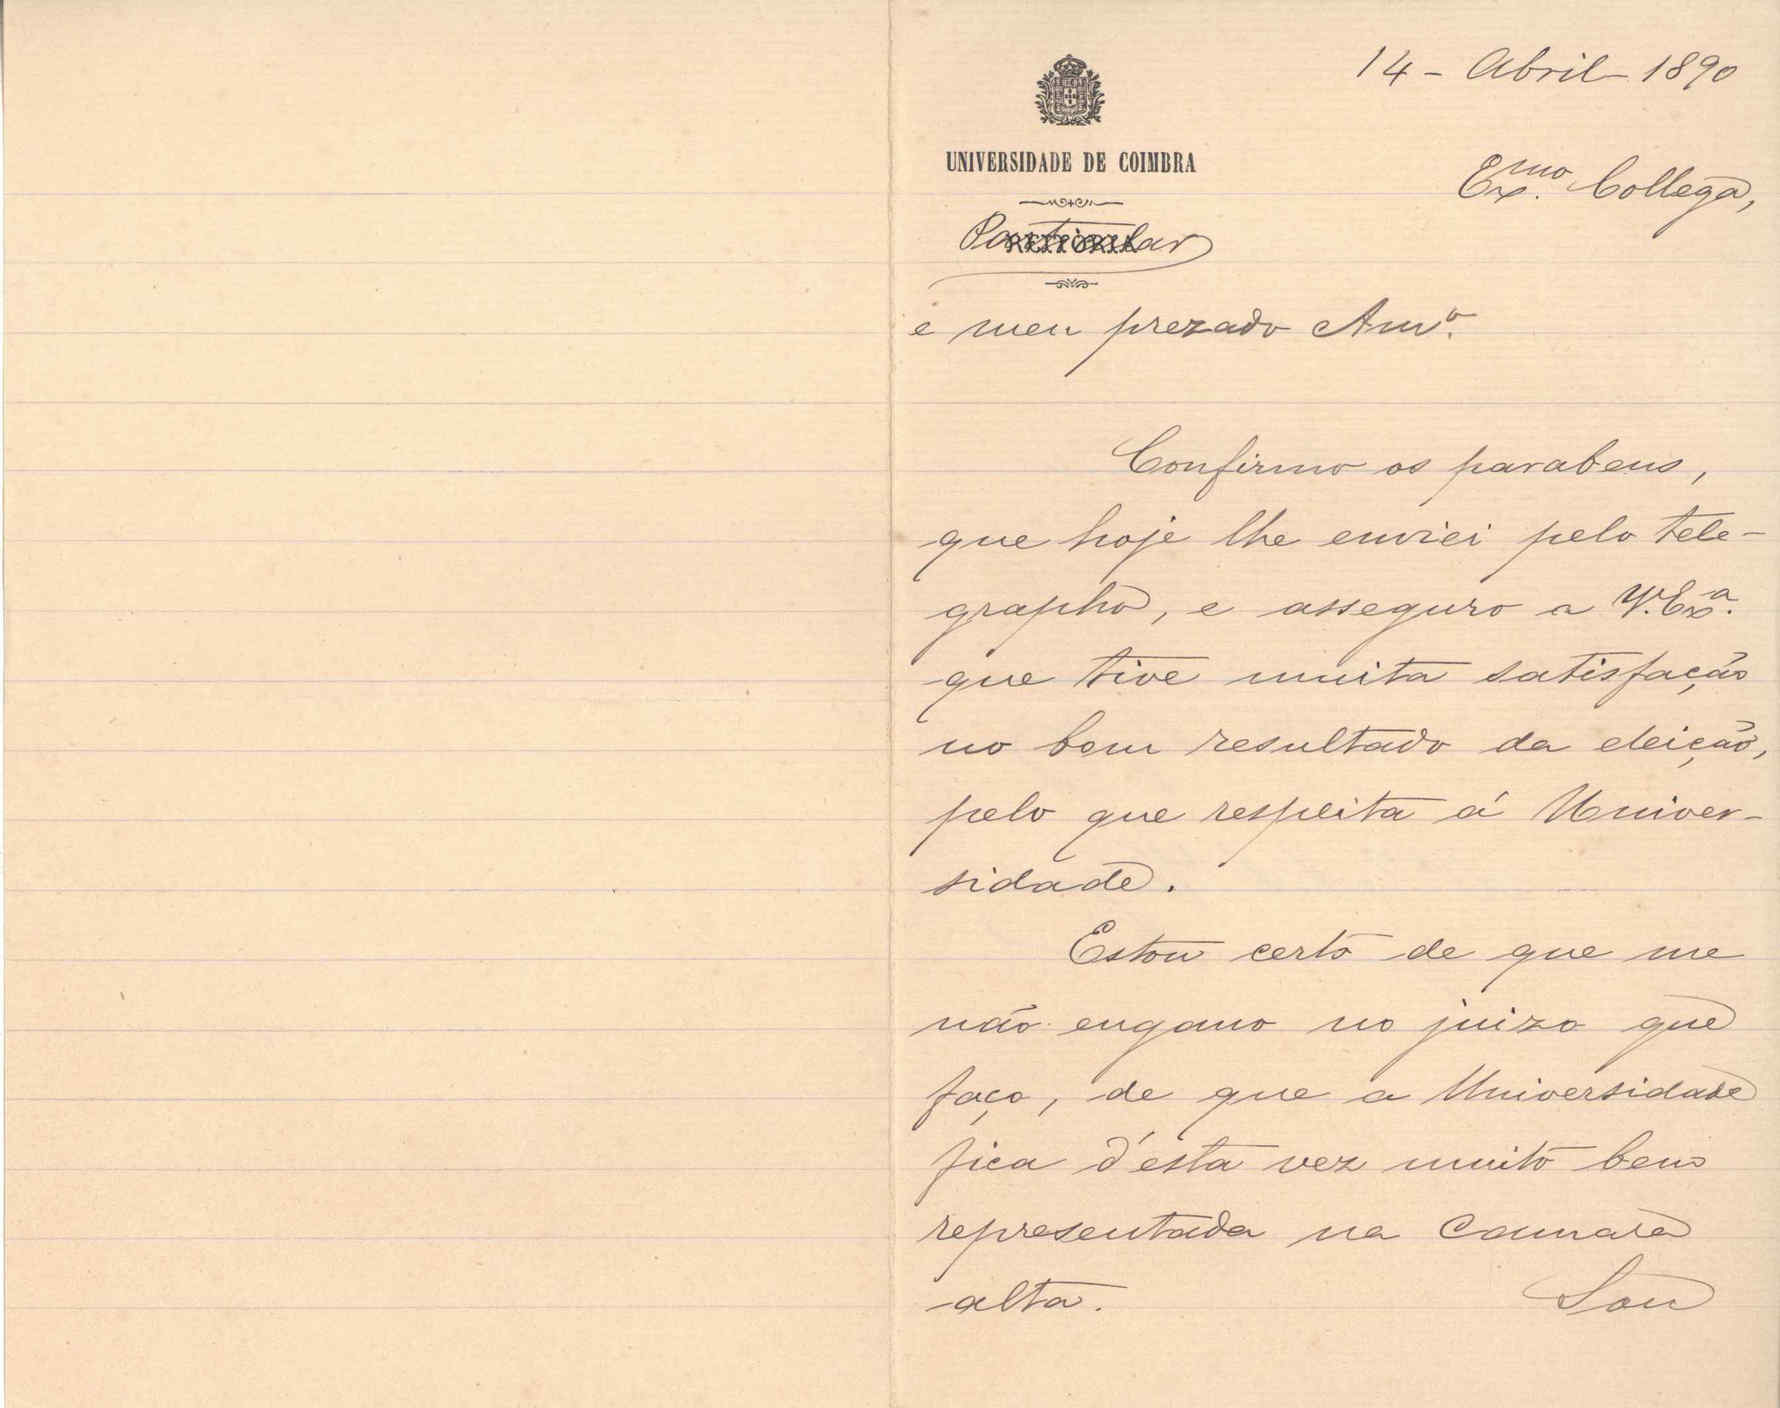 14 - Abril - 1890
UNIVERSIDADE DE COIMBRA
Ex.mo Collega,
REITORIA
Particular
e meu prezado Am.o
Confirmo os parabens,
que hoje lhe enviei pelo tele-
grapho, e asseguro a V. Ex.a
que tive muita satisfação
no bom resultado da eleição,
pelo que respeita á Univer-
sidade.
Estou certo de que me
não engano no juizo que
faço, de que a Universidade
fica d'esta vez muito bem
representada na camara
alta. Sou